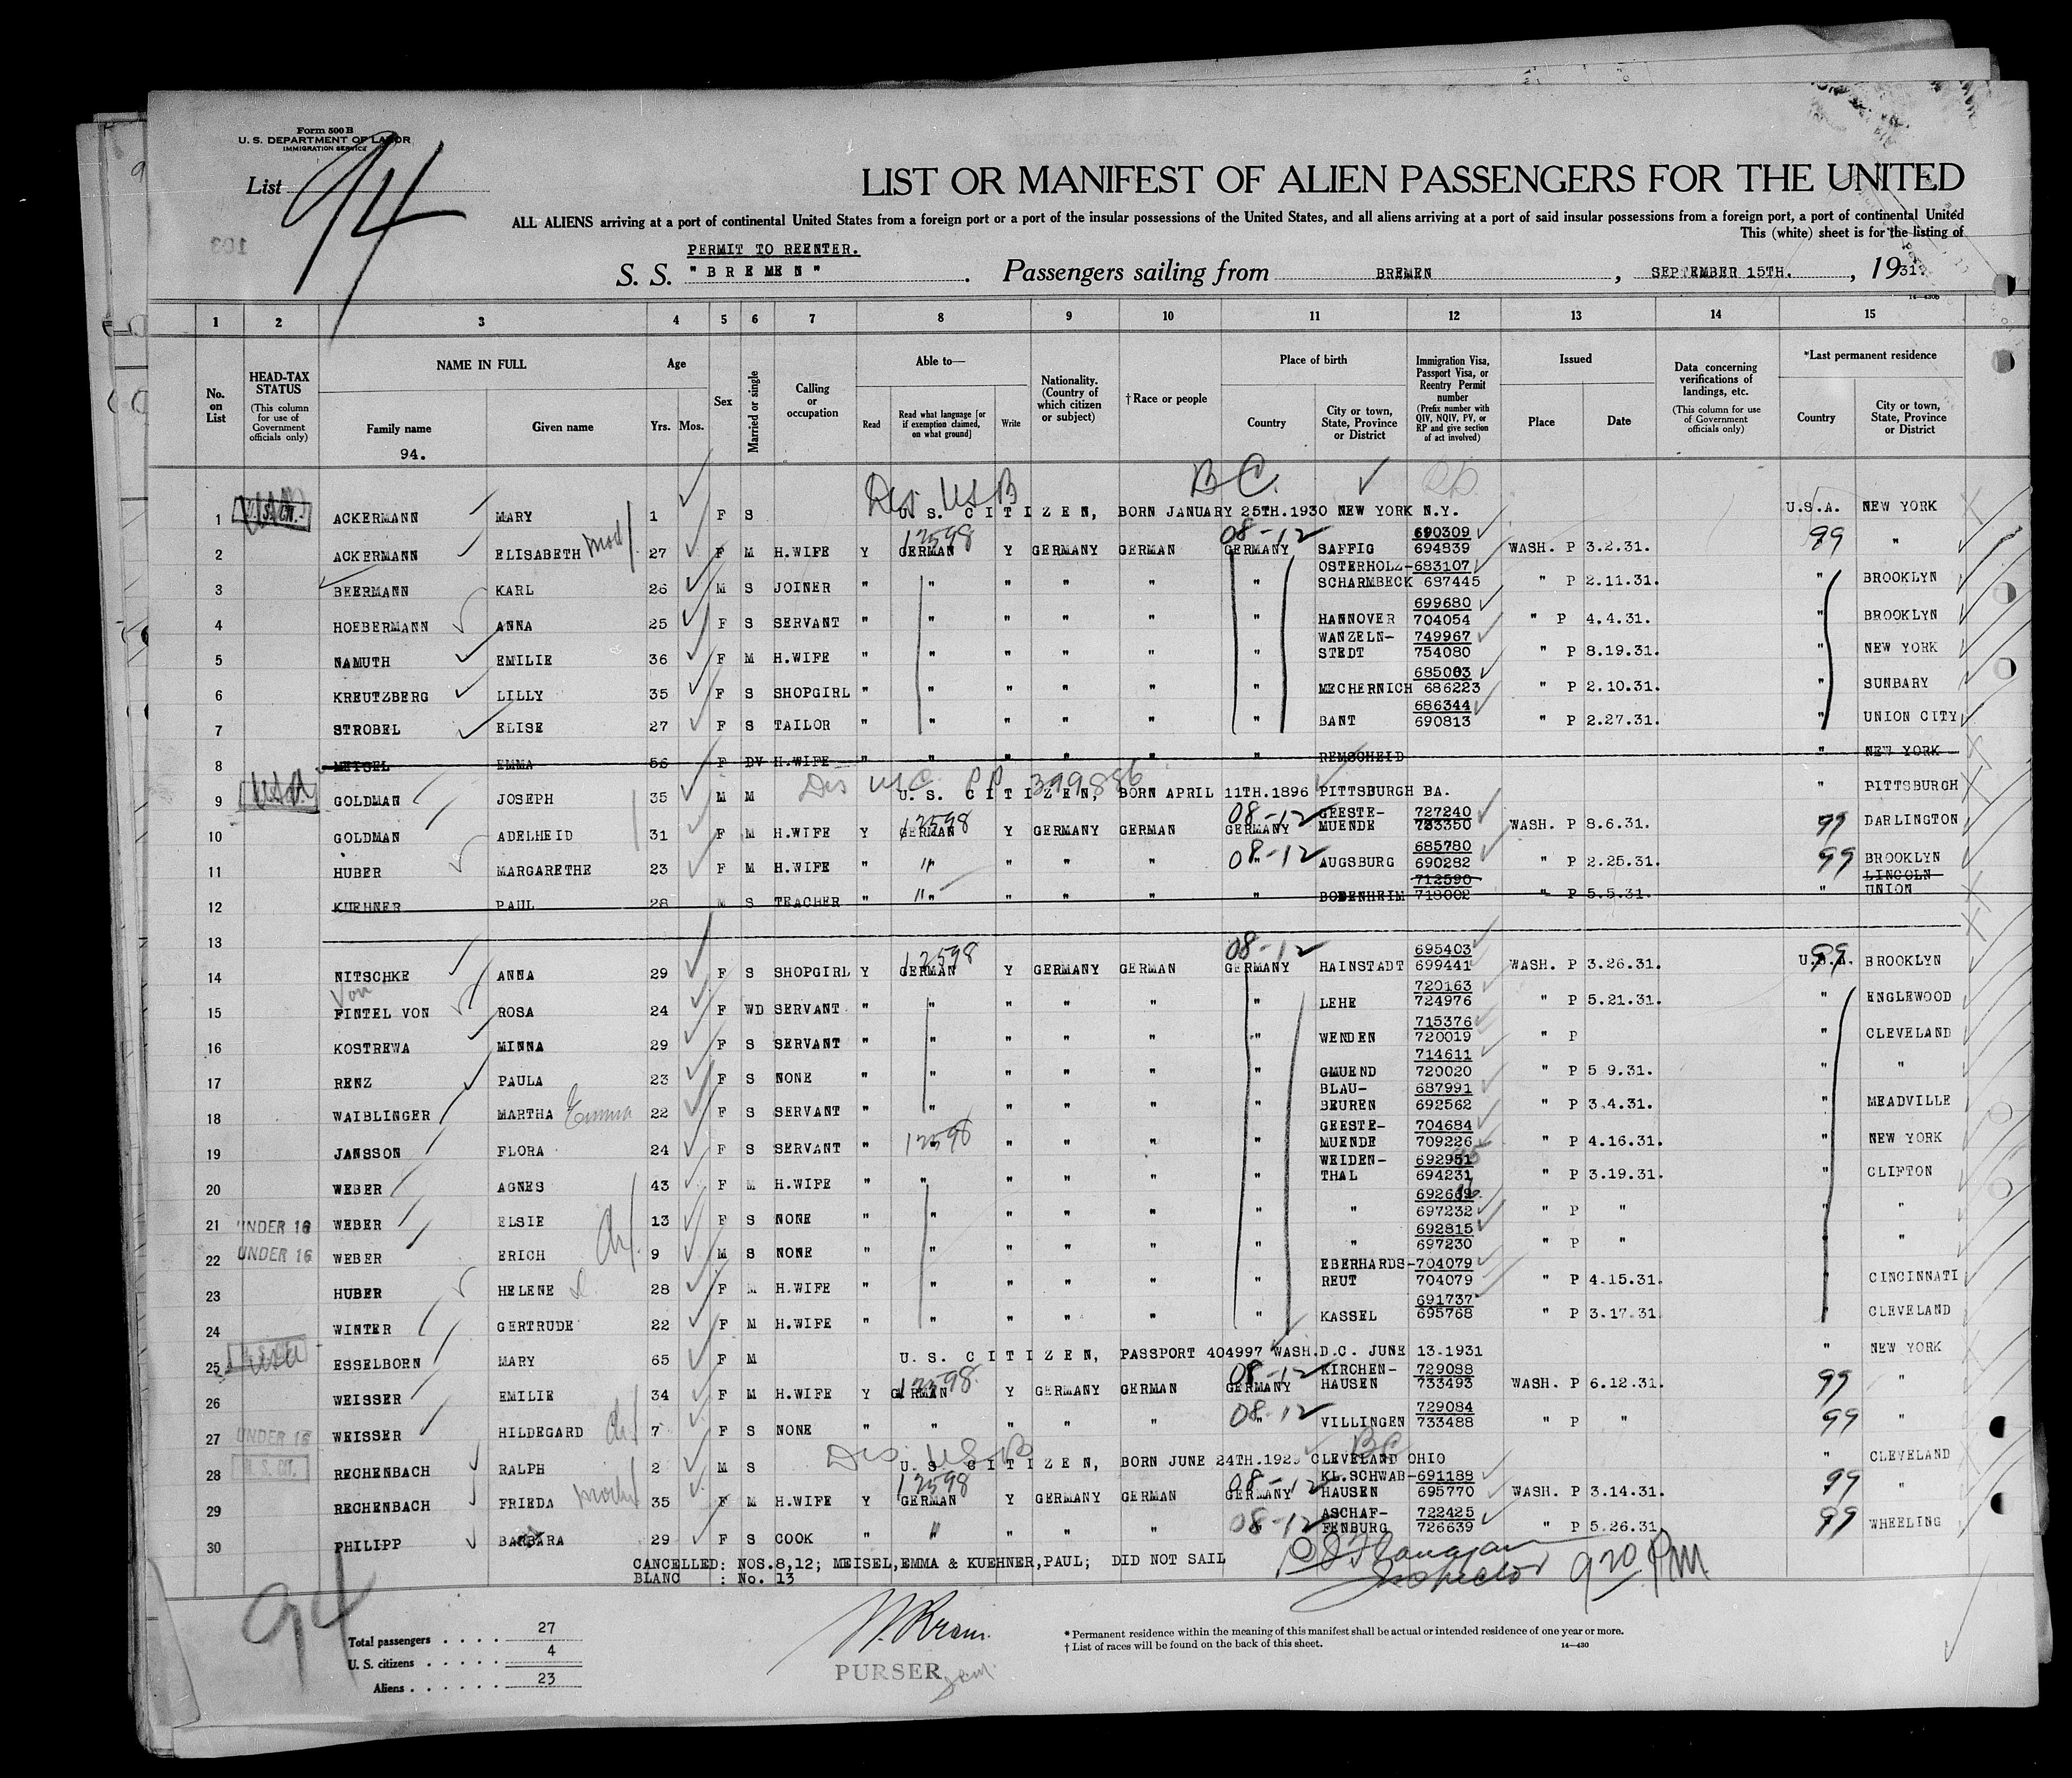 Form 500 B
U. S. DEPARTMENT OF LABOR
IMMIGRATION SERVICE
List 94
LIST OR MANIFEST OF ALIEN PASSENGERS FOR THE UNITED
ALL ALIENS arriving at a port of continental United States from a foreign port or a port of the insular possessions of the United States, and all aliens arriving at a port of said insular possessions from a foreign port, a port of continental United
This (white) sheet is for the listing of
PERMIT TO REENTER.
S. S. "BREMEN". Passengers sailing from BREMEN, SEPTEMBER 15TH., 1931.
14—430b
1 2 3 4 5 6 7 8 9 10 11 12 13 14 15
No. on List
HEAD-TAX STATUS (This column for use of Government officials only)
NAME IN FULL Family name Given name
94.
Age Yrs. Mos.
Sex
Married or single
Calling or occupation
Able to— Read Read what language [or if exemption claimed, on what ground] Write
Nationality. (Country of which citizen or subject)
†Race or people
Place of birth Country City or town, State, Province or District
Immigration Visa, Passport Visa, or Reentry Permit number (Prefix number with QIV, NQIV, PV, or RP and give section of act involved)
Issued Place Date
Data concerning verifications of landings, etc. (This column for use of Government officials only)
*Last permanent residence Country City or town, State, Province or District
B C.
1 ACKERMANN MARY 1 F S U. S. CITIZEN, BORN JANUARY 25TH.1930 NEW YORK N.Y. U.S.A. NEW YORK
12598 08-12 690309
2 ACKERMANN ELISABETH 27 F M H.WIFE Y GERMAN Y GERMANY GERMAN GERMANY SAFFIG 694839 WASH. P 3.2.31. 99 "
OSTERHOLZ- 683107
3 BEERMANN KARL 26 M S JOINER " " " " " " SCHARMBECK 687445 " P 2.11.31. BROOKLYN
699680
4 HOEBERMANN ANNA 25 F S SERVANT " " " " " " HANNOVER 704054 " P 4.4.31. " BROOKLYN
WANZELN- 749967
5 NAMUTH EMILIE 36 F M H.WIFE " " " " " " STEDT 754080 " P 8.19.31. " NEW YORK
685003
6 KREUTZBERG LILLY 35 F S SHOPGIRL " " " " " " MECHERNICH 686223 " P 2.10.31. " SUNBARY
686344
7 STROBEL ELISE 27 F S TAILOR " " " " " " BANT 690813 " P 2.27.31. " UNION CITY
8 MEISEL EMMA 56 F DV H.WIFE " " " " " " REMSCHEID " NEW YORK
9 GOLDMAN JOSEPH 35 M M U. S. CITIZEN, BORN APRIL 11TH.1896 PITTSBURGH BA. " PITTSBURGH
12598 08-12 GEESTE- 727240
10 GOLDMAN ADELHEID 31 F M H.WIFE Y GERMAN Y GERMANY GERMAN GERMANY MUENDE 733350 WASH. P 8.6.31. 99 DARLINGTON
08-12 685780
11 HUBER MARGARETHE 23 F M H.WIFE " " " " " " AUGSBURG 690282 " P 2.25.31. 99 BROOKLYN
712590 LINCOLN
12 KUEHNER PAUL 28 M S TEACHER " " " " " " BODENHEIM 718002 " P 5.5.31. " UNION
13
12598 08-12 695403
14 NITSCHKE ANNA 29 F S SHOPGIRL Y GERMAN Y GERMANY GERMAN GERMANY HAINSTADT 699441 WASH. P 3.26.31. U.S.A. 99 BROOKLYN
Von 720163
15 FINTEL VON ROSA 24 F WD SERVANT " " " " " " LEHE 724976 " P 5.21.31. " ENGLEWOOD
715376
16 KOSTREWA MINNA 29 F S SERVANT " " " " " " WENDEN 720019 " P " CLEVELAND
714611
17 RENZ PAULA 23 F S NONE " " " " " " GMUEND 720020 " P 5 9.31. " "
BLAU- 687991
18 WAIBLINGER MARTHA Emma 22 F S SERVANT " " " " " " BEUREN 692562 " P 3.4.31. " MEADVILLE
12598 GEESTE- 704684
19 JANSSON FLORA 24 F S SERVANT " " " " " MUENDE 709226 " P 4.16.31. " NEW YORK
WEIDEN- 692951
20 WEBER AGNES 43 F M H.WIFE " " " " " " THAL 694231 " P 3.19.31. " CLIFTON
21 UNDER 16 WEBER ELSIE 13 F S NONE " " " " " " " 697232 " P " " "
692815
22 UNDER 16 WEBER ERICH 9 M S NONE " " " " " " " 697230 " P " " "
EBERHARDS- 704079
23 HUBER HELENE 28 F M H.WIFE " " " " " " REUT 704079 " P 4.15.31. " CINCINNATI
691737
24 WINTER GERTRUDE 22 F M H.WIFE " " " " " " KASSEL 695768 " P 3.17.31. " CLEVELAND
25 ESSELBORN MARY 65 F M U. S. CITIZEN, PASSPORT 404997 WASH.D.C. JUNE 13.1931 " NEW YORK
12598 08-12 KIRCHEN- 729088
26 WEISSER EMILIE 34 F M H.WIFE Y GERMAN Y GERMANY GERMAN GERMANY HAUSEN 733493 WASH. P 6.12.31. 99 "
08-12 729084
27 UNDER 16 WEISSER HILDEGARD 7 F S NONE " " " " " " VILLINGEN 733488 " P " 99 "
28 U. S. CIT. RECHENBACH RALPH 2 M S U. S. CITIZEN, BORN JUNE 24TH.1929 CLEVELAND OHIO " CLEVELAND
12598 08-12 KL.SCHWAB- 691188
29 RECHENBACH FRIEDA 35 F M H.WIFE Y GERMAN Y GERMANY GERMAN GERMANY HAUSEN 695770 WASH. P 3.14.31. 99 "
08-12 ASCHAF- 722425
30 PHILIPP BARBARA 29 F S COOK " " " " " FENBURG 726639 " P 5.26.31. 99 WHEELING
CANCELLED: NOS.8,12; MEISEL,EMMA & KUEHNER,PAUL; DID NOT SAIL
BLANC : No. 13
Inspector 9 20 P.M.
94
Total passengers . . . . 27
U. S. citizens . . . . . 4
Aliens . . . . . . 23
PURSER
* Permanent residence within the meaning of this manifest shall be actual or intended residence of one year or more.
† List of races will be found on the back of this sheet.
14—430